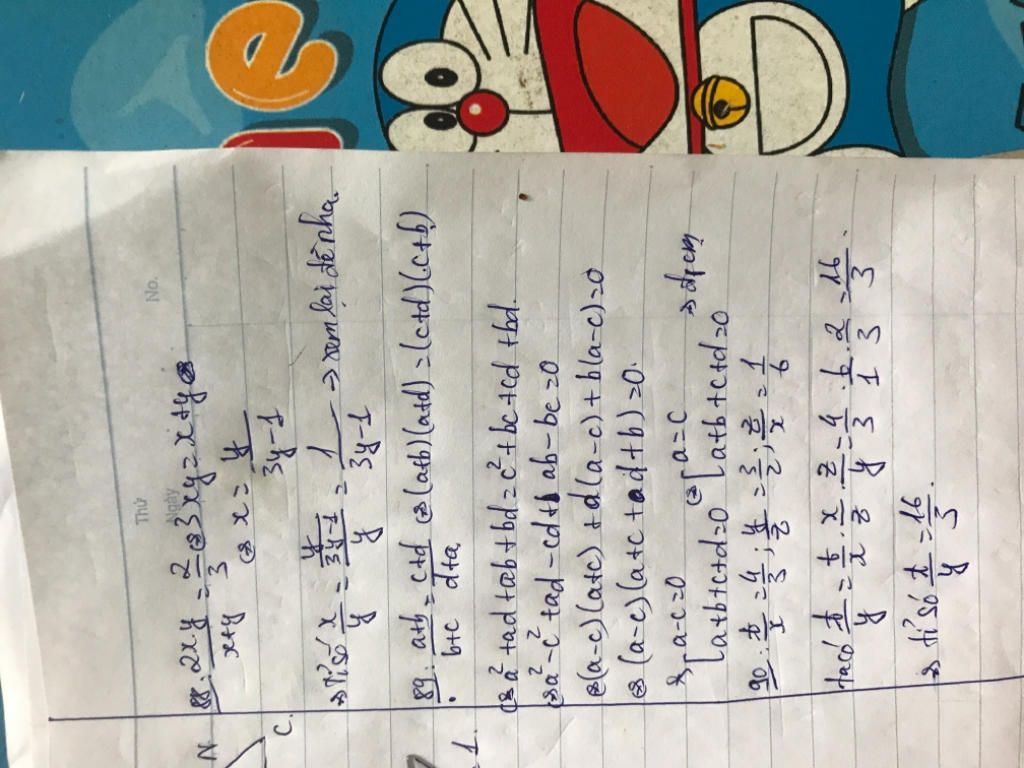 e
Thứ
Ngày
No.
88: 2xy/x+y = 2/3 ⇔ 3xy = x+y ⇔
⇔ x = y/3y-1
⇒ Tỉ số x/y = y/3y-1/y = 1/3y-1 → xem lại đề nha.
89: a+b/b+c = c+d/d+a ⇔ (a+b)(a+d) = (c+d)(c+b)
⇔ a²+ad+ab+bd = c²+bc+cd+bd.
⇔ a²-c²+ad-cd+ab-bc=0
⇔ (a-c)(a+c)+d(a-c)+b(a-c)=0
⇔ (a-c)(a+c+d+b)=0.
⇒ [a-c=0 ⇔ [a=c ⇒ đpcm
[a+b+c+d=0 [a+b+c+d=0
90: t/x = 4/3; y/z = 3/2; z/x = 1/6
ta có t/y = t/x . x/z . z/y = 4/3 . 6/1 . 2/3 = 16/3.
⇒ tỉ số t/y = 16/3.
N
C.
1.